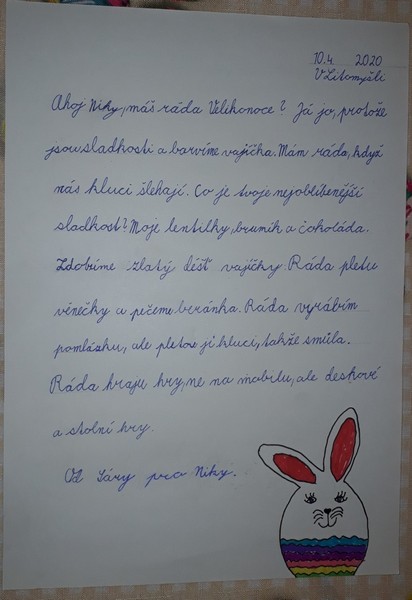 10.4 2020
V Litomyšli
Ahoj Niky, máš ráda Velikonoce? Já jo, protože
jsou sladkosti a barvíme vajíčka. Mám ráda, když
nás kluci šlehají. Co je tvoje nejoblíbenější
sladkost? Moje lentilky, brumík a čokoláda.
Zdobíme zlatý déšť vajíčky. Ráda pletu
věnečky a pečeme beránka. Ráda vyrábím
pomlázku, ale pletou ji kluci, takže smůla.
Ráda hraju hry, ne na mobilu, ale deskové
a stolní hry.
Od Sáry pro Niky.